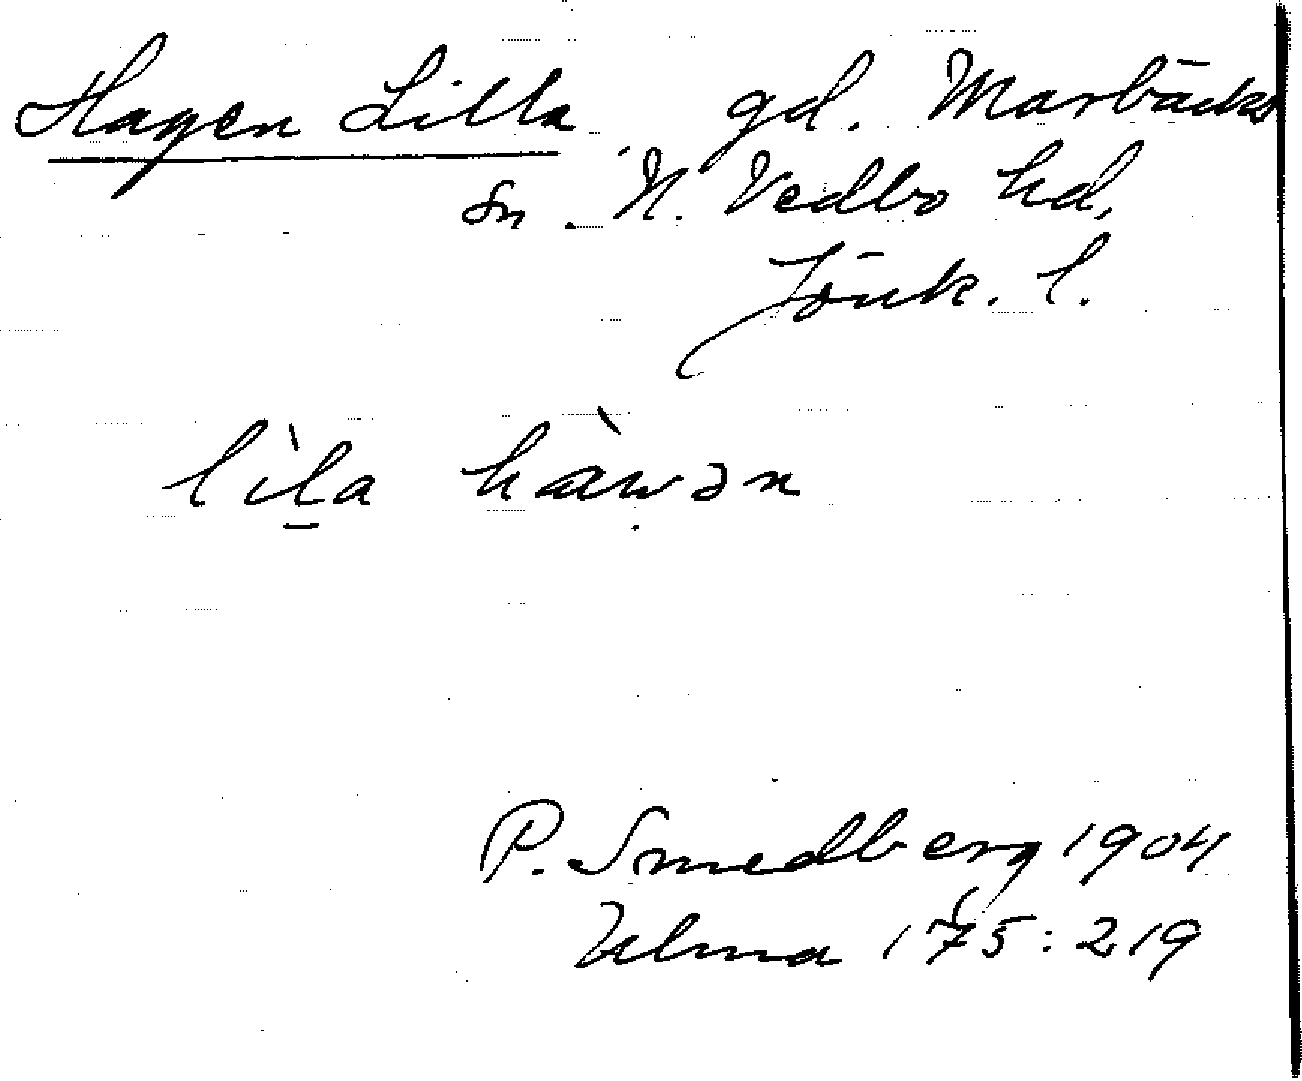 Hagen Lilla gd. Marbäcks
sn. N. Vedbo hd,
Jönk. l.
lìl̲a hàẉən
P. Smedberg 1904
Ulma 175:219